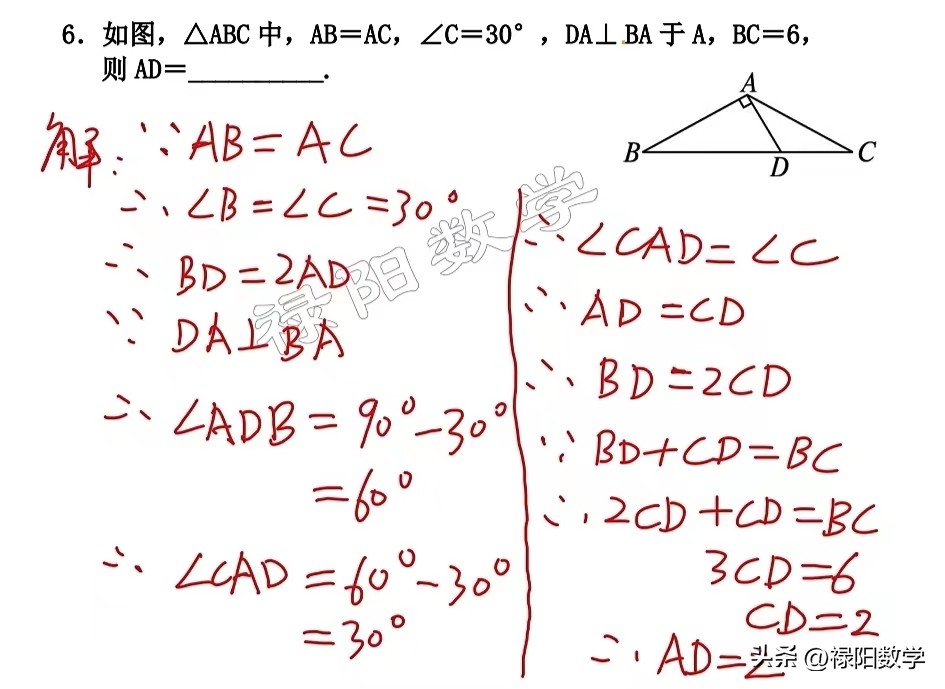 6. 如图，△ABC 中，AB＝AC，∠C＝30°，DA⊥BA 于 A，BC＝6，
则 AD＝__________.
A
B
D
C
解：∵AB=AC
∴∠B=∠C=30°
∴BD=2AD
∵DA⊥BA
∴∠ADB=90°-30°
=60°
∴∠CAD=60°-30°
=30°
∴∠CAD=∠C
∴AD=CD
∴BD=2CD
∵BD+CD=BC
∴2CD+CD=BC
3CD=6
CD=2
∴AD=2
禄阳数学
头条 @禄阳数学